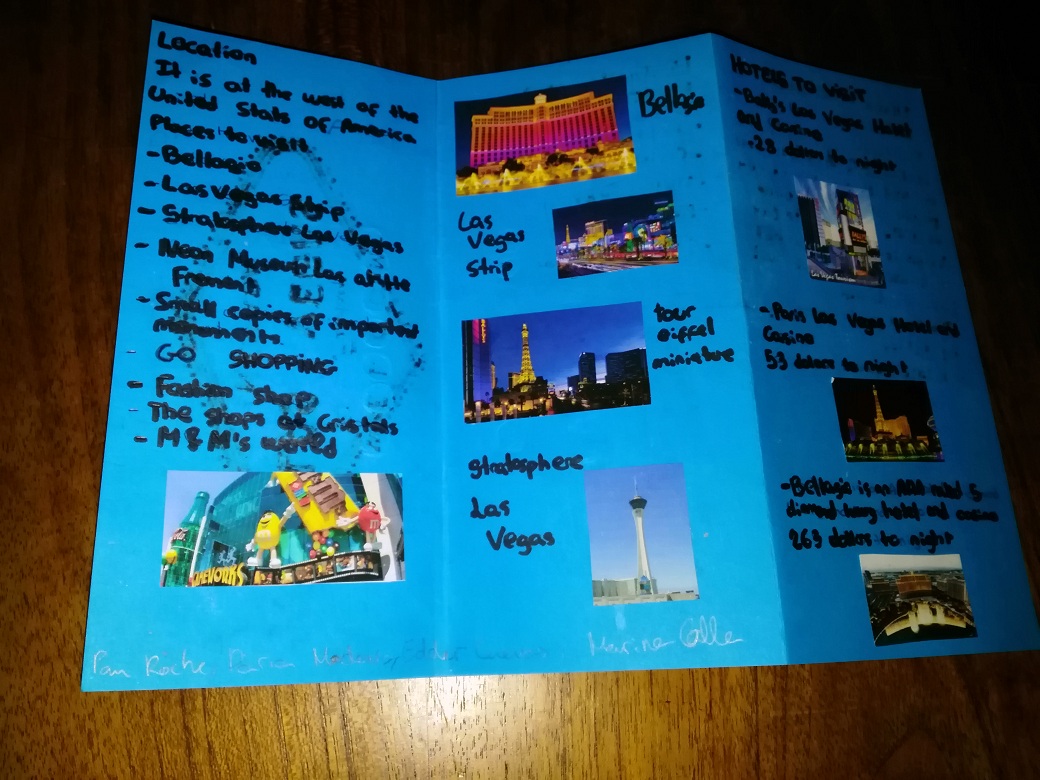 Location
It is at the west of the
United Stats of America
Places to visit
- Bellagio
- Las Vegas Strip
- Stratosphere Las Vegas
- Neon Museum Las at the
Fremont
- Small copies of imported
monuments
- GO SHOPPING
- Fashion shop
- The shops at Cristals
- M & M's world
Bellagio
Las
Vegas
Strip
tour
eiffel
miniature
stratosphere
Las
Vegas
Marina Calle
HOTELS TO VISIT
- Bally's Las Vegas Hotel
and Casino
28 dollars to night
- Paris Las Vegas and
Casino
53 dollars to night
- Bellagio is an AAA 5
diamond hotel and casino
263 dollars to night